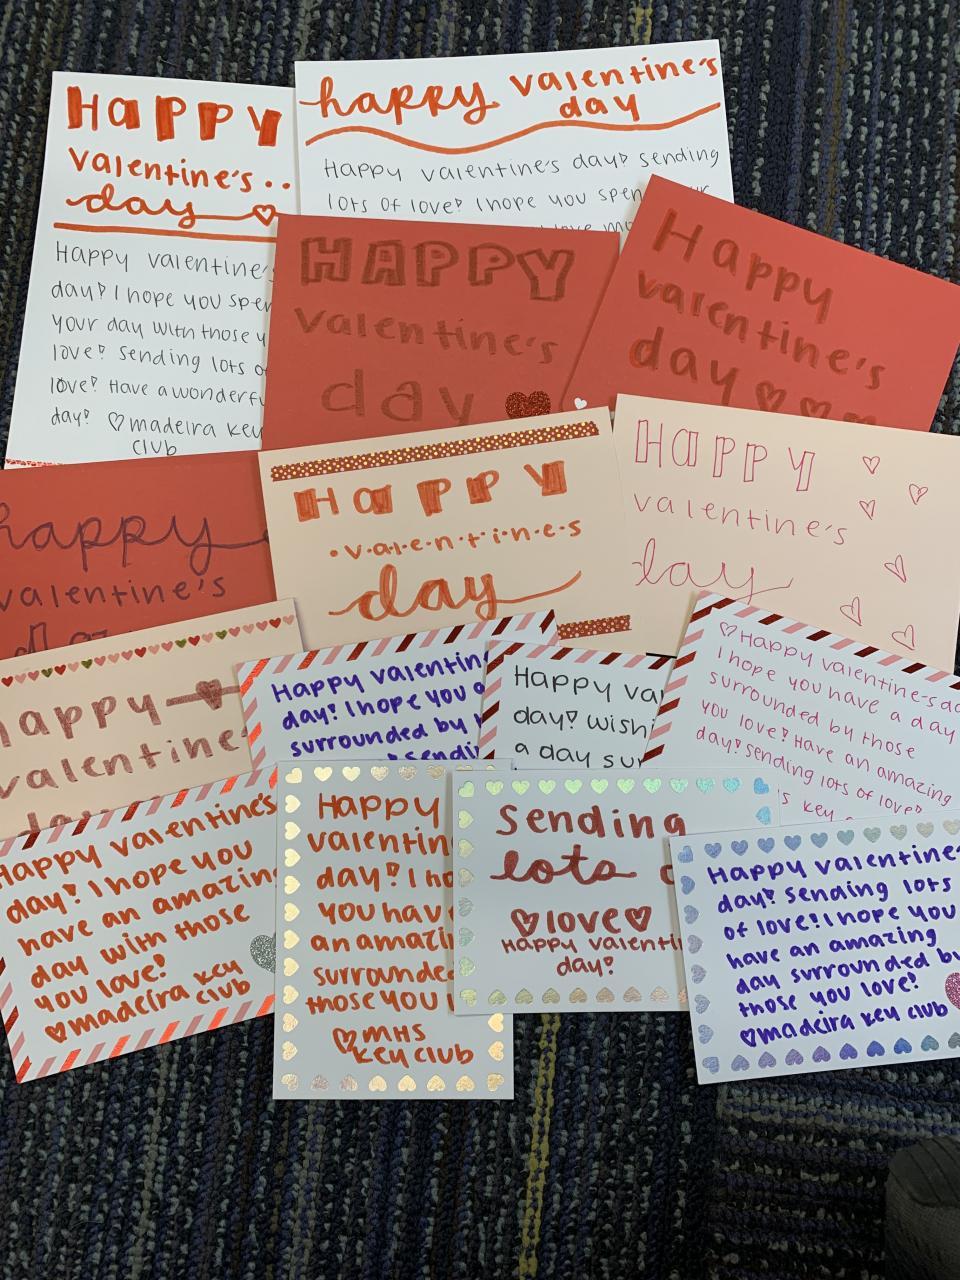 Happy
valentine's
day
Happy valentine's
day! I hope you
your day with those
love! Sending lots
love! Have a
day! ♡madeira key
club
happy valentine's
day
Happy valentine's day! Sending
lots of love! I hope you
HAPPY
valentine's
day
Happy
valentine's
day ♡♡♡
happy
valentine's
Happy
valentines
day
Happy
valentine's
day
happy
valentine
Happy valentin
day! I hope you
surrounded by
sendin
Happy va
day! wish
a day sur
♡Happy valentine's da
I hope you have a day
surrounded by those
you love! Have an amazing
day! sending lots of love!
key
Happy valentine's
day! I hope you
have an amazing
day with those
you love!
♡madeira key
club
Happy
valentin
day! I ho
you hav
an amazi
surrounded
those you
♡MHS
key club
Sending
lots
♡love♡
Happy valentin
day!
Happy valentine
day! Sending lots
of love! I hope you
have an amazing
day surrounded by
those you love!
♡madeira key club